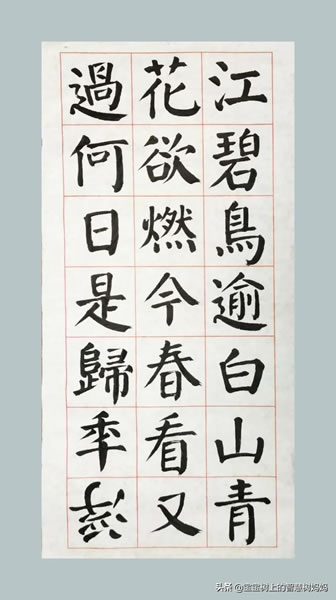 江碧鳥逾白山青
花欲燃今春看又
過何日是歸年
头条 @树上的智慧树妈妈